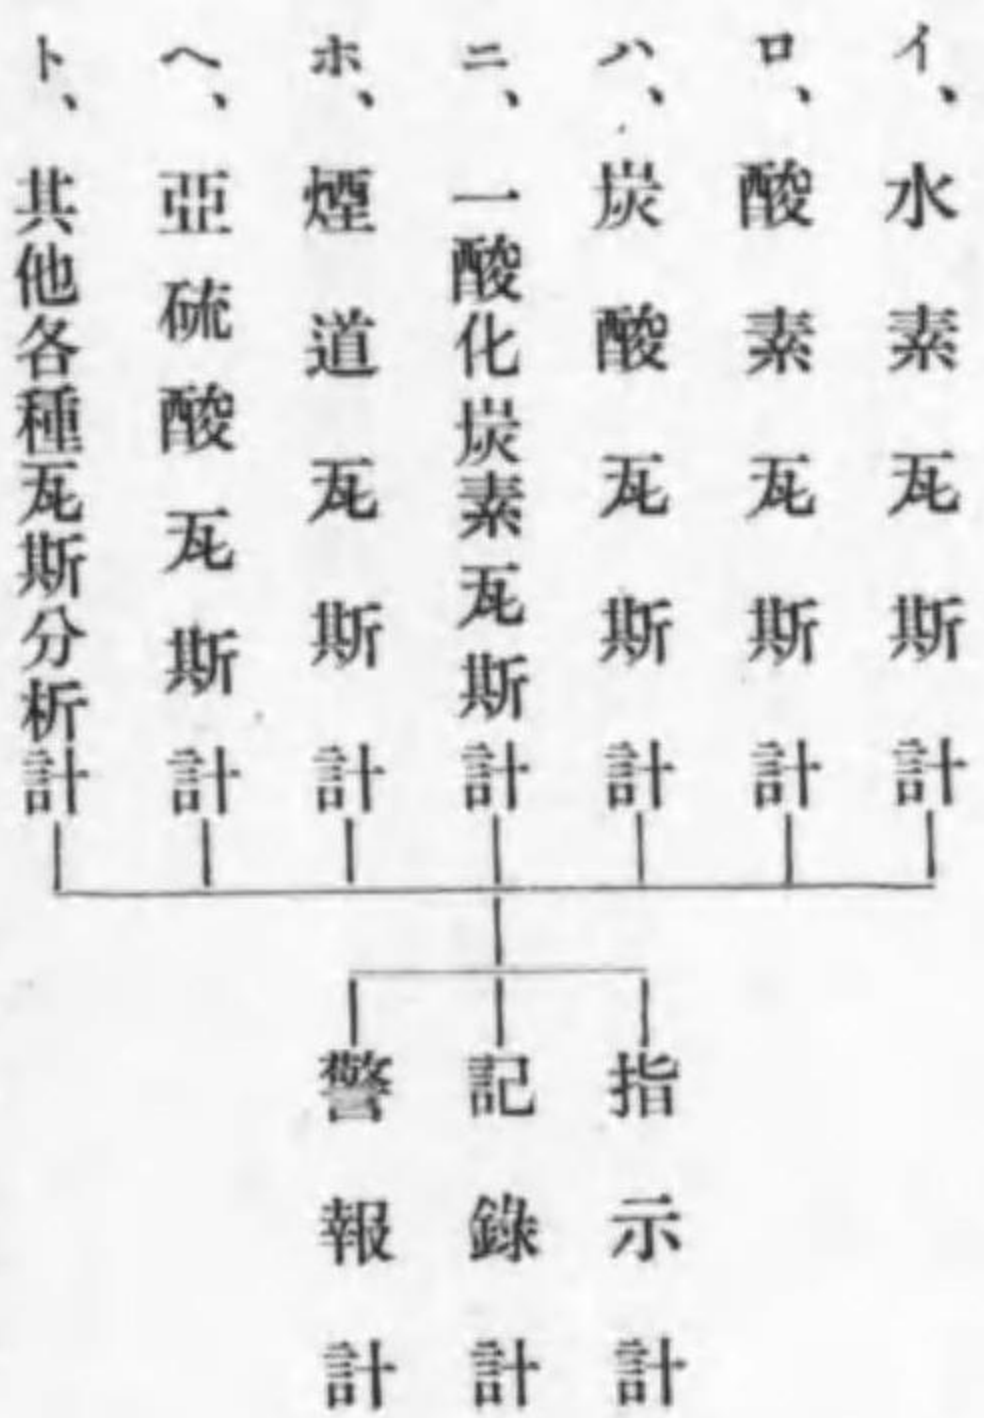 イ、水素瓦斯計
ロ、酸素瓦斯計
ハ、炭酸瓦斯計
ニ、一酸化炭素瓦斯計
ホ、煙道瓦斯計
ヘ、亞硫酸瓦斯計
ト、其他各種瓦斯分析計
指示計
記錄計
警報計